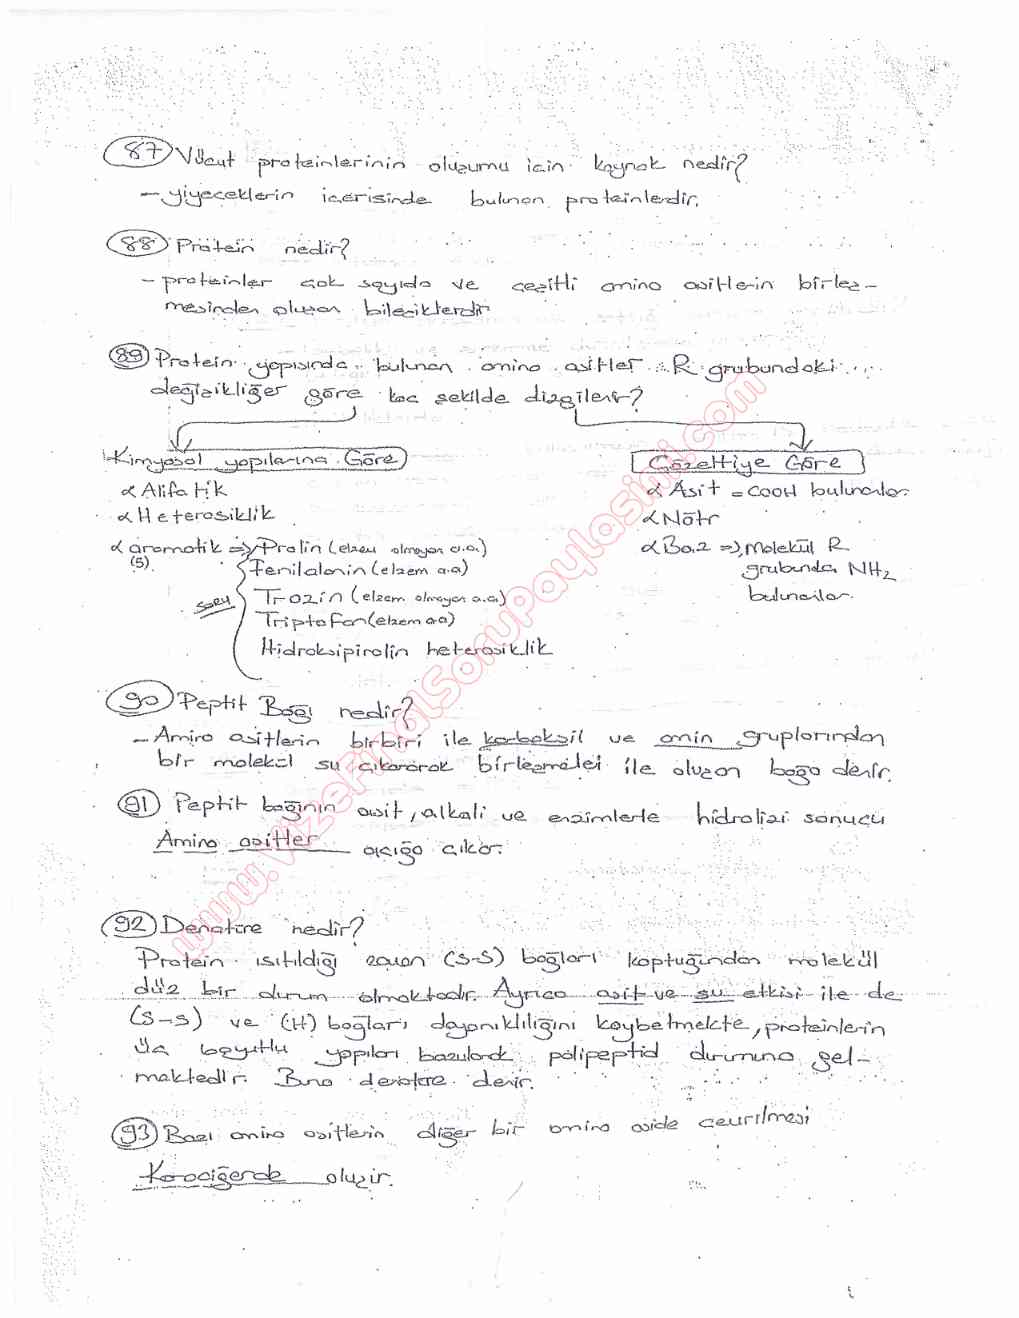 87 Vücut proteinlerinin oluşumu için kaynak nedir?
– yiyeceklerin içerisinde bulunan proteinlerdir.
88 Protein nedir?
– proteinler çok sayıda ve çeşitli amino asitlerin birleş-
mesinden oluşan bileşiklerdir
89 Protein yapısında bulunan amino asitler R grubundaki
değişikliğer göre kaç şekilde dizgilenir?
Kimyasal yapılarına Göre
Gözeltiye Göre
α Alifatik
α Asit = COOH bulunanlar.
α Heterosiklik
α Nötr
α aromatik => Prolin (elzem olmayan a.a.)
(5)
α Baz => Molekül R
Fenilalanin (elzem a.a)
grubunda NH2
soru
Trozin (elzem olmayan a.a)
bulunanlar.
Triptofan (elzem a.a)
Hidroksipirolin heterosiklik
90 Peptit Bağı nedir?
– Amino asitlerin birbiri ile karboksil ve amin gruplarından
bir molekül su çıkararak birleşmeleri ile oluşan bağa denir.
91 Peptit bağının asit, alkali ve enzimlerle hidrolizi sonucu
Amino asitler açığa çıkar.
92 Denatüre nedir?
Protein ısıtıldığı zaman (S-S) bağları koptuğundan molekül
düz bir durum almaktadır. Ayrıca asit ve su etkisi ile de
(S-S) ve (H) bağları dayanıklılığını kaybetmekte, proteinlerin
üç boyutlu yapıları bozularak polipeptid durumuna gel-
mektedir. Buna denatüre denir.
93 Bazı amino asitlerin diğer bir amino aside çevrilmesi
Karaciğerde oluşur.
www.VizeFinalSoruPaylasimi.com